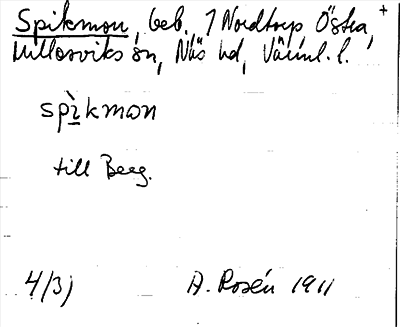 Spikmon, beb. 7 Nordtorp Östra, +
Millesviks sn, Näs hd, Värml. l.
spìkmon
till Berg.
4/3) A. Rosén 1911